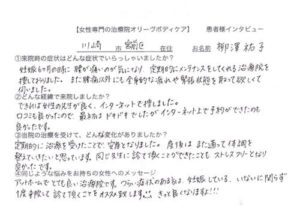 【女性専門の治療院オリーヴボディケア】 患者様インタビュー
川崎 市 宮前区 在住 お名前 柳澤 祐子
①来院時の症状はどんな症状でいらっしゃいましたか？
妊娠6ヶ月の時に腰が痛いのが気になり、定期的にメンテナンスをしてくれる治療院を
探しておりました。また腰痛以外にも全身的な疲れや緊張状態を取って欲しくて
伺いました。
②どんな経緯で来院しましたか？
できれば女性の先生が良く、インターネットで探しました。
口コミも良かったので、最初はドキドキでしたがインターネットより予約ができたのも
良かったです。
③当院の治療を受けて、どんな変化がありましたか？
定期的に治療を受けたことで安産となりました。産後はまた通って体調を
整えていきたいと思っています。同じ先生に診て頂くことができたことも ストレスフリーとなり
良かったです。
④同じような悩みをお持ちの女性へのメッセージ
アットホームでとても良い治療院です。つらい症状のある方は、妊娠している、いないに関らず
1度来院して診て頂くことをオススメ致します!! きっと良くなりますよ!!